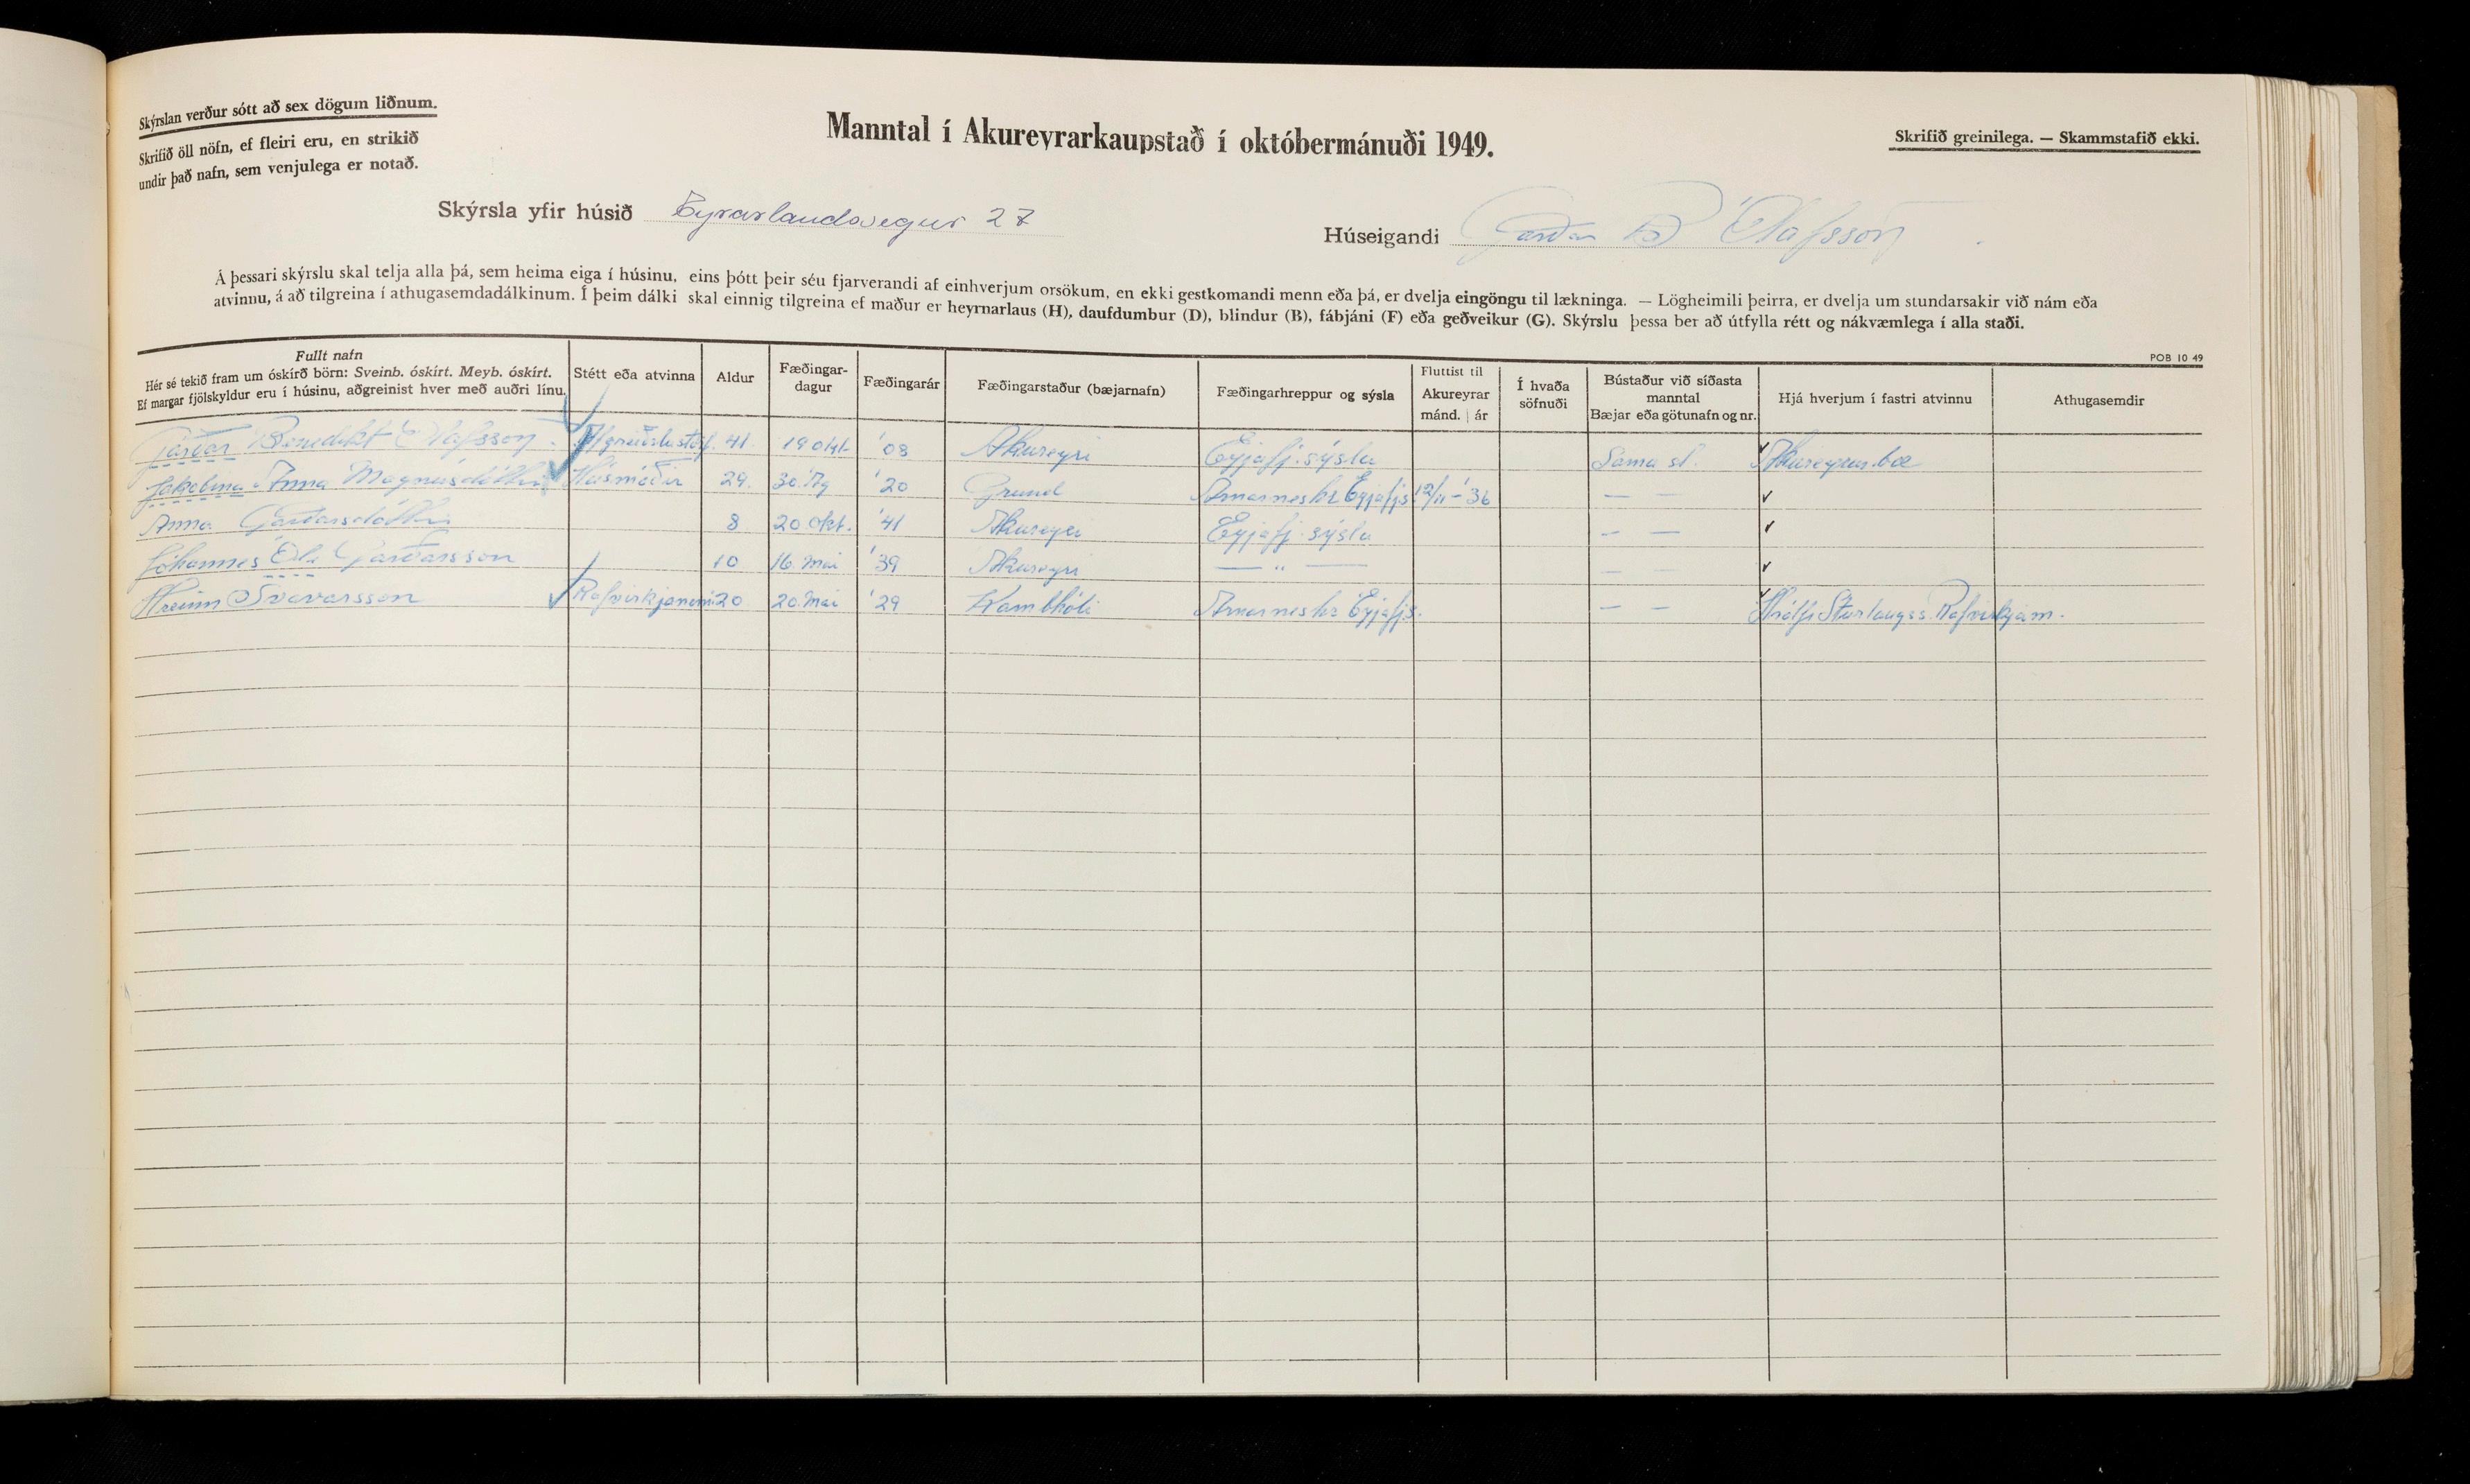 Skýrslan verður sótt að sex dögum liðnum.
Skrifið öll nöfn, ef fleiri eru, en strikið
undir það nafn, sem venjulega er notað.
Manntal í Akureyrarkaupstað í októbermánuði 1949.
Skrifið greinilega. — Skammstafið ekki.
Skýrsla yfir húsið Eyrarlandsvegur 27
Húseigandi Garðar B Ólafsson
Á þessari skýrslu skal telja alla þá, sem heima eiga í húsinu, eins þótt þeir séu fjarverandi af einhverjum orsökum, en ekki gestkomandi menn eða þá, er dvelja eingöngu til lækninga. — Lögheimili þeirra, er dvelja um stundarsakir við nám eða
atvinnu, á að tilgreina í athugasemdadálkinum. Í þeim dálki skal einnig tilgreina ef maður er heyrnarlaus (H), daufdumbur (D), blindur (B), fábjáni (F) eða geðveikur (G). Skýrslu þessa ber að útfylla rétt og nákvæmlega í alla staði.
POB 10 49
Fullt nafn
Hér sé tekið fram um óskírð börn: Sveinb. óskírt. Meyb. óskírt.
Ef margar fjölskyldur eru í húsinu, aðgreinist hver með auðri línu.
Stétt eða atvinna
Aldur
Fæðingar-
dagur
Fæðingarár
Fæðingarstaður (bæjarnafn)
Fæðingarhreppur og sýsla
Fluttist til
Akureyrar
mánd. | ár
Í hvaða
söfnuði
Bústaður við síðasta
manntal
Bæjar eða götunafn og nr.
Hjá hverjum í fastri atvinnu
Athugasemdir
Garðar Benedikt Ólafsson. Afgreiðslustörf. 41. 19 okt. '08 Akureyri Eyjafj. sýslu Sama st. Akureyrar.bæ
Jakobína Anna Magnúsdóttir Húsmóðir 29. 30. Ág '20 Grund Arnarneshr Eyjafjs. 12/11 - '36 — —
Anna Garðarsdóttir 8 20 okt. '41 Akureyri Eyjafj. sýslu — —
Jóhannes Garðarsson 10 16. mai '39 Akureyri — " — — —
Hreinn Svavarsson Rafvirkjanemi 20 20. mai '29 Kambhóli Arnarneshr Eyjafjs. — — Sturlaugss. Rafvirkjam.